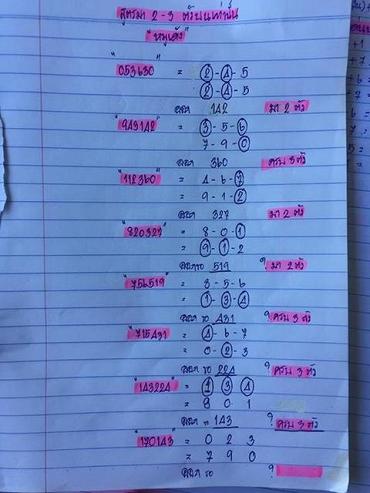 สูตรมา 2-3 ตัวบนเท่านั้น
"หมูเด้ง"
"053630" = 2-4-5
2-4-5
ออก 142 มา 2 ตัว
"943142" = 3-5-6
= 7-9-0
ออก 360 ครบ 3 ตัว
"112360" = 4-6-7
= 9-1-2
ออก 327 มา 2 ตัว
"820327" = 8-0-1
= 9-1-2
ออก 519 ? มา 2 ตัว
"756519" = 8-5-6
= 1-3-4
ออก 431 ? ครบ 3 ตัว
"715431" = 4-6-7
= 0-2-3
ออก 224 ? ครบ 3 ตัว
"143224" = 1 3 4
= 8 0 1
ออก 143 ? ครบ 3 ตัว
"170143" = 0 2 3
= 7 9 0
ออก ?